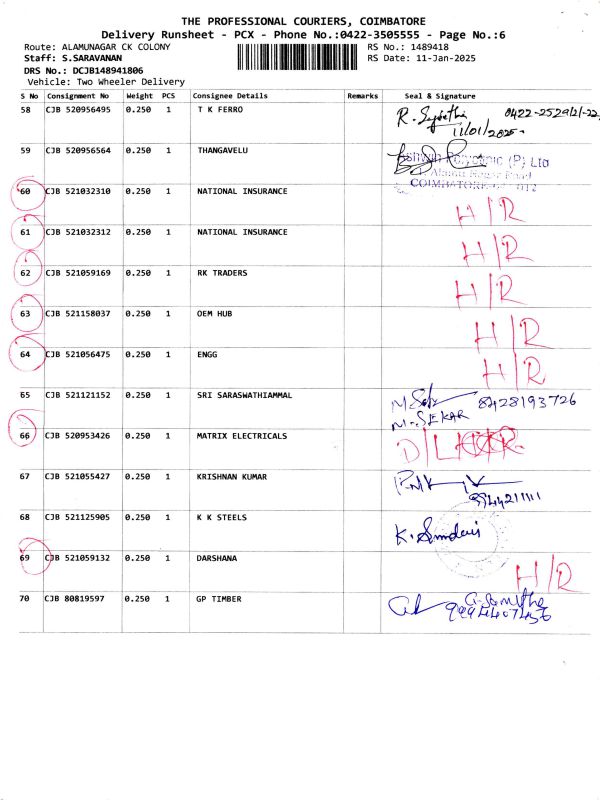 THE PROFESSIONAL COURIERS, COIMBATORE
Delivery Runsheet - PCX - Phone No.:0422-3505555 - Page No.:6
Route: ALAMUNAGAR CK COLONY RS No.: 1489418
Staff: S.SARAVANAN RS Date: 11-Jan-2025
DRS No.: DCJB148941806
Vehicle: Two Wheeler Delivery
S No Consignment No Weight PCS Consignee Details Remarks Seal & Signature
58 CJB 520956495 0.250 1 T K FERRO R. 0422-2529121-22
11/01/2025
59 CJB 520956564 0.250 1 THANGAVELU
Ashwin Polyclinic (P) Ltd
Road
COIMBATORE
60 CJB 521032310 0.250 1 NATIONAL INSURANCE H/R
61 CJB 521032312 0.250 1 NATIONAL INSURANCE H/R
62 CJB 521059169 0.250 1 RK TRADERS H/R
63 CJB 521158037 0.250 1 OEM HUB H/R
64 CJB 521056475 0.250 1 ENGG H/R
65 CJB 521121152 0.250 1 SRI SARASWATHIAMMAL 8428193726
M. SEKAR
66 CJB 520953426 0.250 1 MATRIX ELECTRICALS D/L
67 CJB 521055427 0.250 1 KRISHNAN KUMAR
9944211111
68 CJB 521125905 0.250 1 K K STEELS K.
69 CJB 521059132 0.250 1 DARSHANA H/R
70 CJB 80819597 0.250 1 GP TIMBER
9994407456